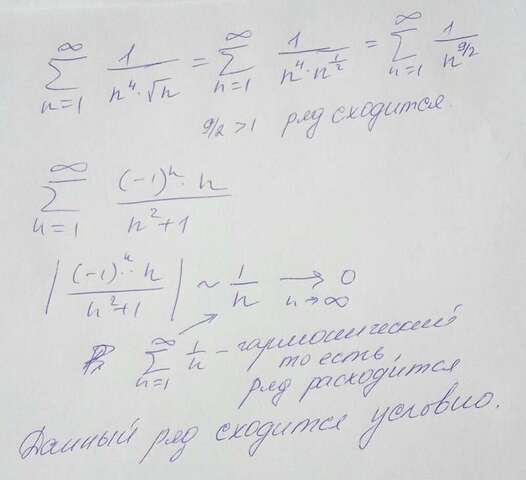 ∞∑n=1 1/(n⁴·√n) = ∞∑n=1 1/(n⁴·n^(1/2)) = ∞∑n=1 1/n^(9/2)
9/2 > 1 ряд сходится.
∞∑n=1 (-1)ⁿ·n/(n²+1)
|(-1)ⁿ·n/(n²+1)| ~ 1/n → 0 n→∞
∞∑n=1 1/n - гармонический
то есть
ряд расходится
Данный ряд сходится условно.